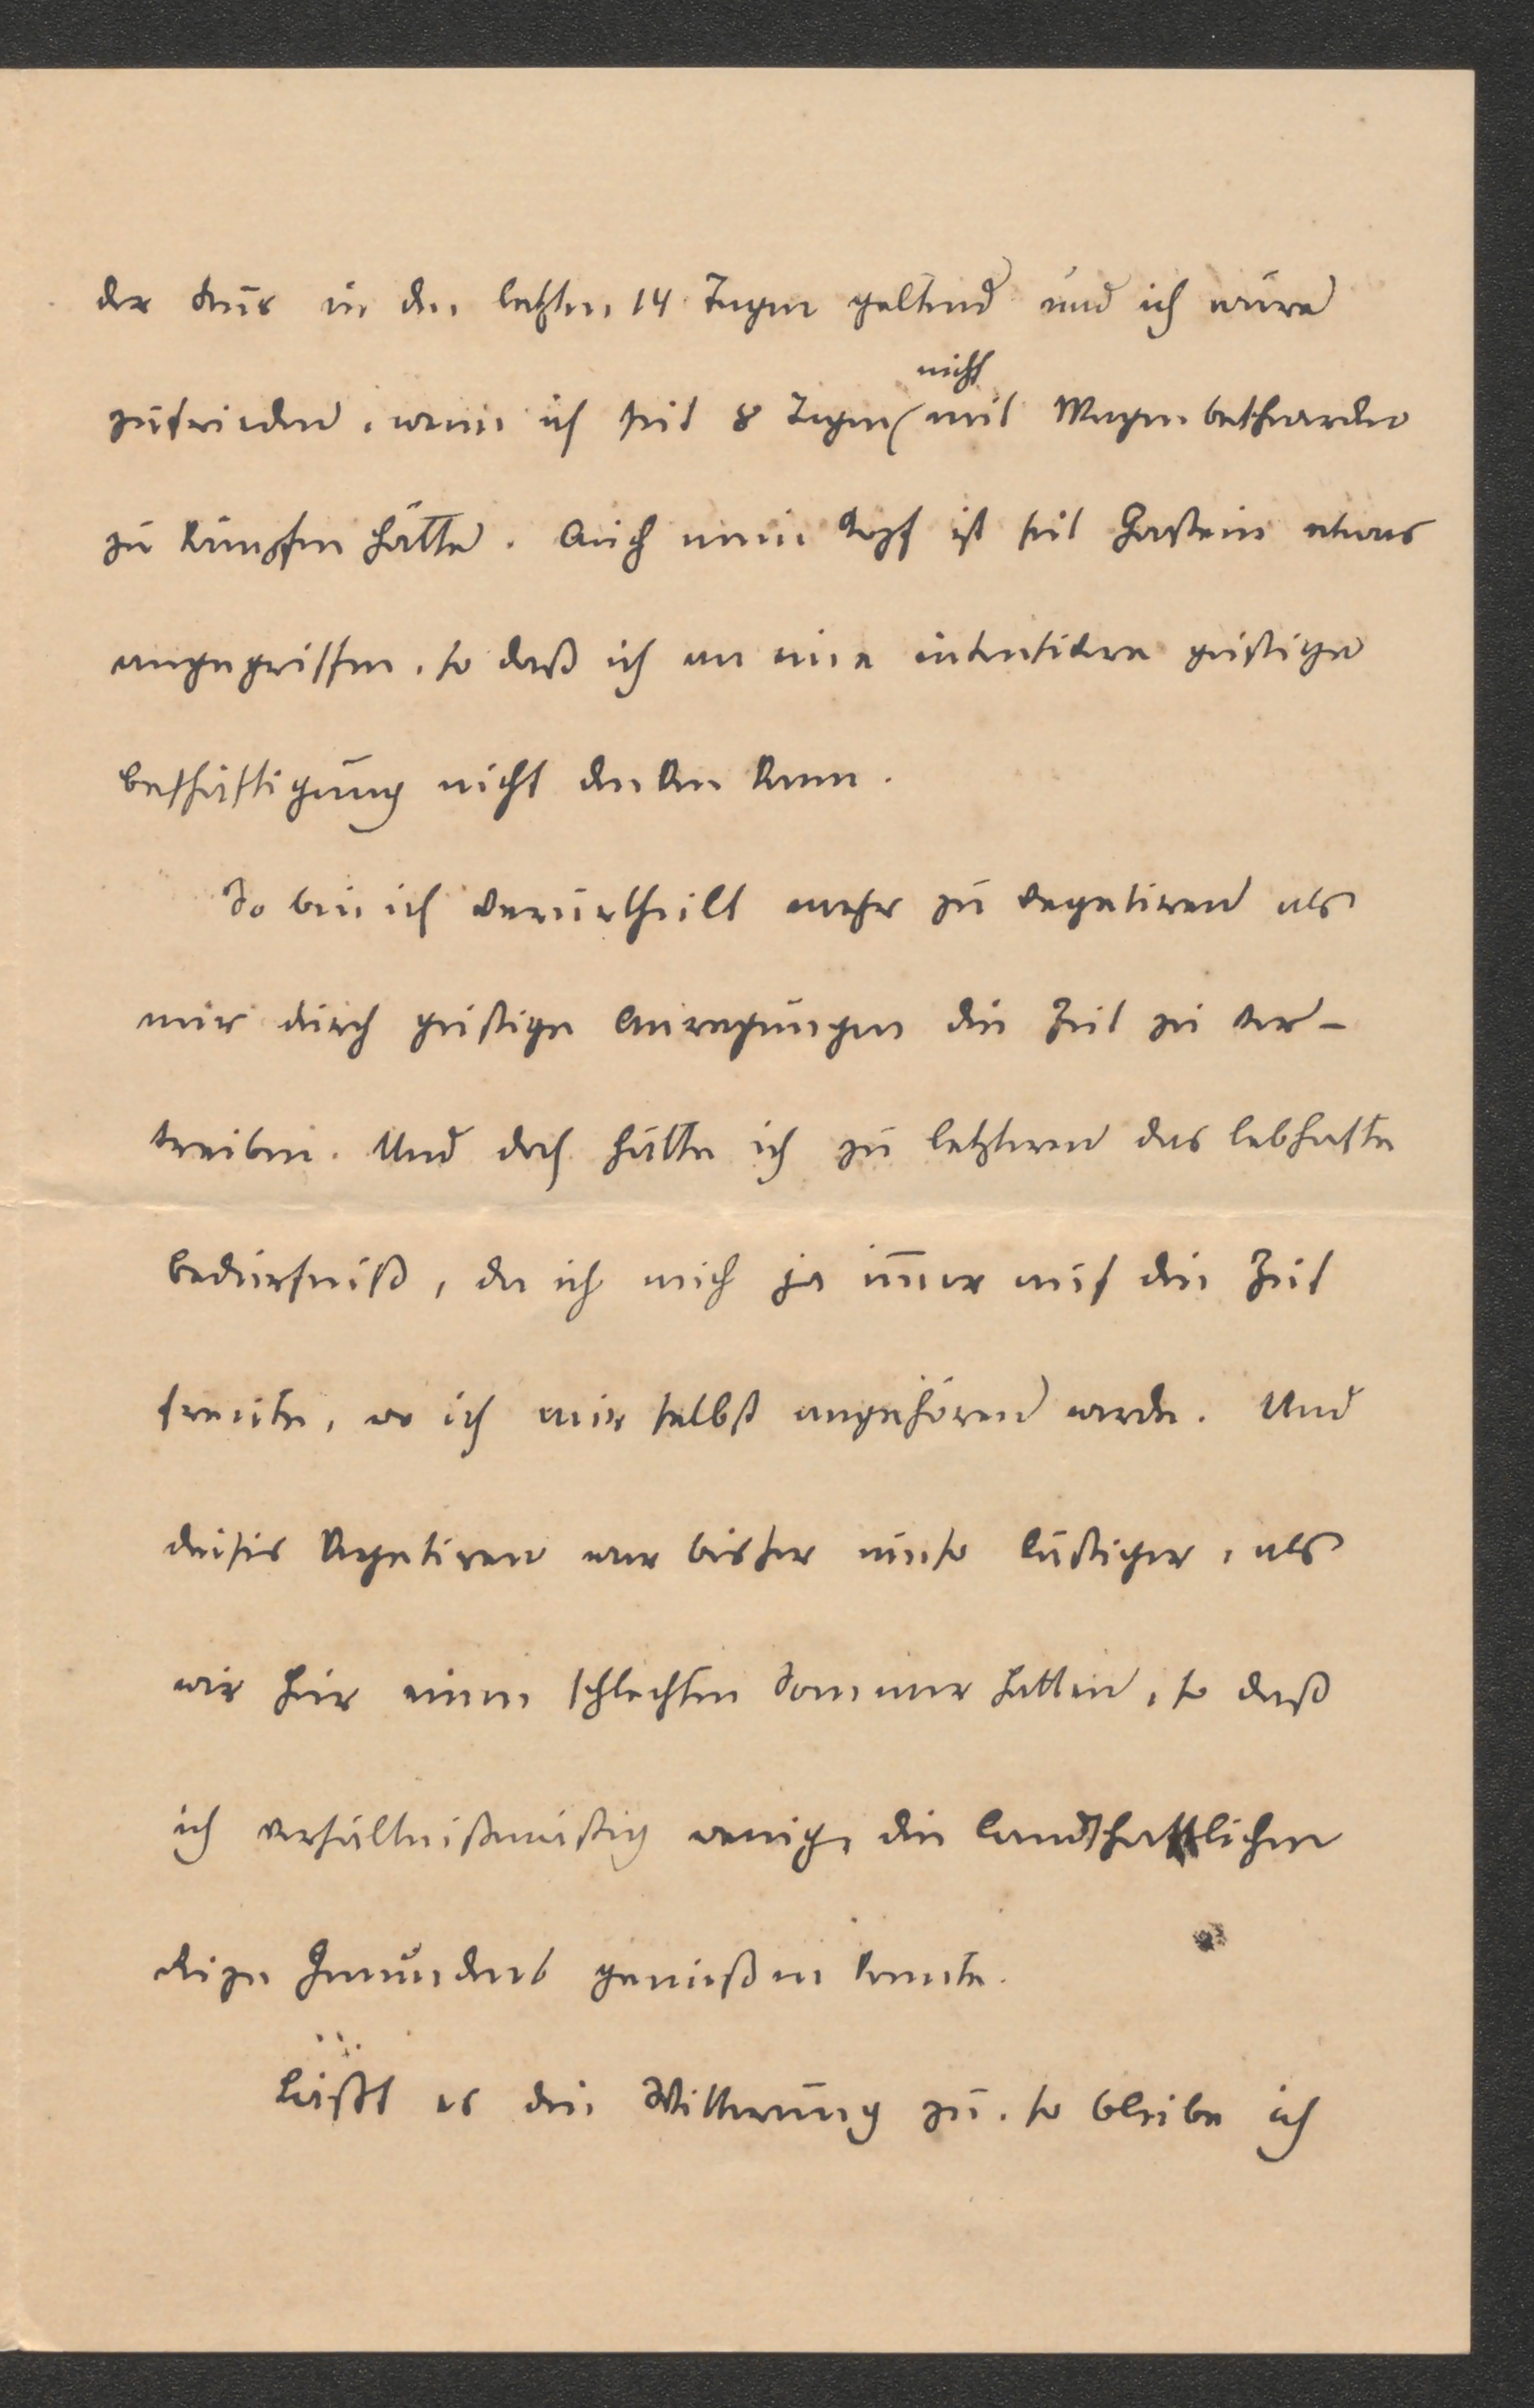 der Kur in den letzten 14 Tagen geltend und ich wäre
nicht
zufrieden, wenn ich seit 8 Tagen mit Magenbeschwerden
zu kämpfen hätte. Auch mein Kopf ist seit Gastein etwas
angegriffen, so daß ich an eine intensivere geistige
Beschäftigung nicht denken kann.
So bin ich verurtheilt mehr zu vegetiren als
mir durch geistige Anregungen die Zeit zu ver-
treiben. Und doch hätte ich zu letzterem das lebhafte
Bedürfniß, da ich mich ja im̄er auf die Zeit
freute, wo ich mir selbst angehören werde. Und
dieses Vegetiren war bisher umso lästiger, als
wir hier einen schlechten Sommer hatten, so daß
ich verhältnißmäßig wenig die landschaftlichen
Reize Gmundens genießen konnte.
Läßt es die Witterung zu, so bleibe ich